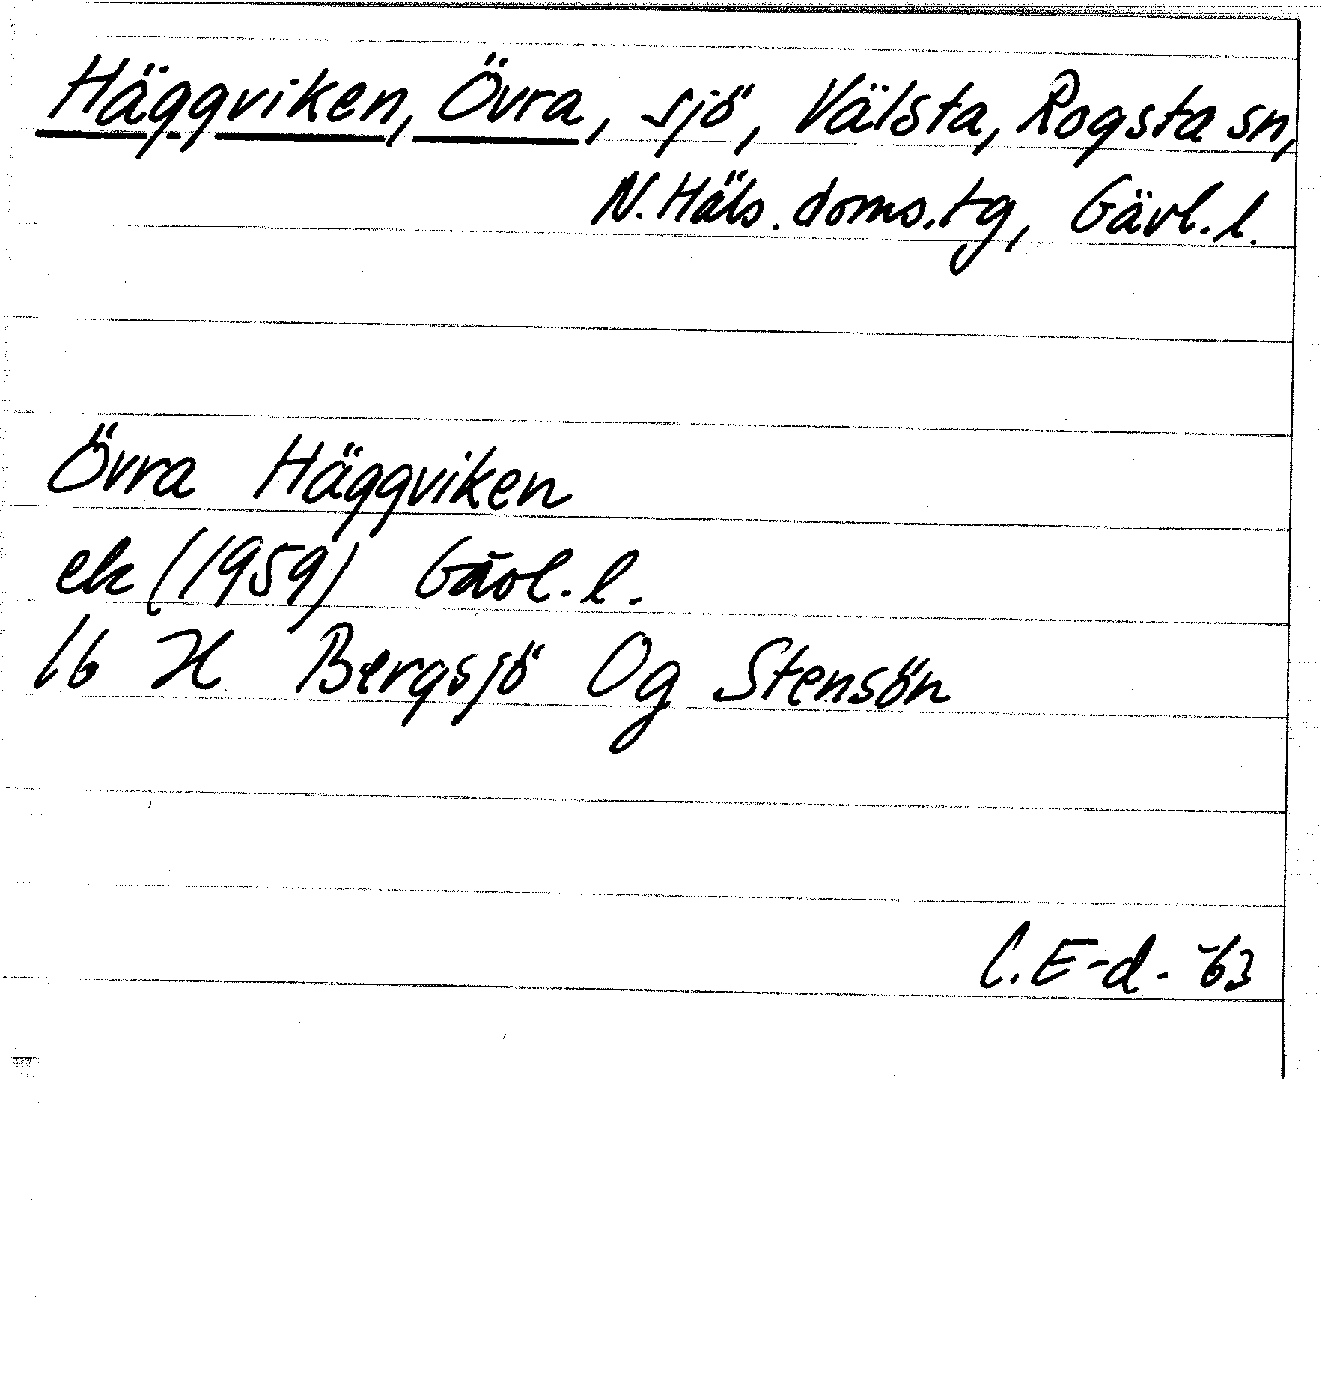 Häggviken, Övra, sjö, Välsta, Rogsta sn,
N. Häls. doms. tg, Gävl. l.
Övra Häggviken
ek (1959) Gävl. l.
16 H Bergsjö Og Stensön
C. E-d. -63